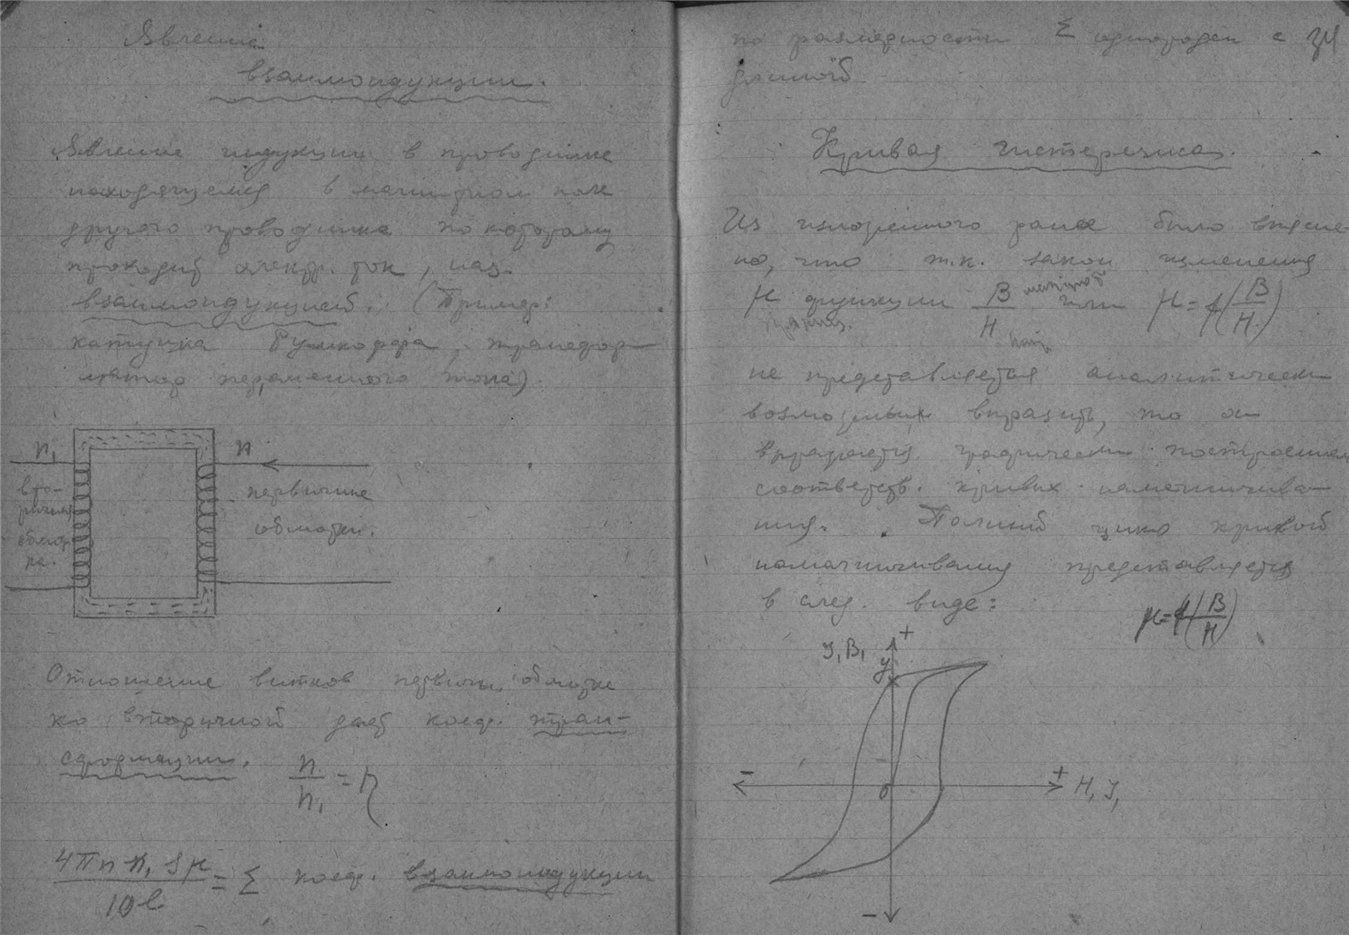 Явление
взаимоиндукции.
Явление индукции в проводнике
находящемся в магнитном поле
другого проводника по которому
проходит электр. ток, наз.
взаимоиндукцией. (Пример:
катушка Румкорфа, трансфор-
матор переменного тока).
n₁ n
вто-
ричная
обмот-
ка.
первичные
обмотки.
Отношение витков первичн. обмотки
ко вторичной даёт коэф. тран-
сформации. n/n₁ = η
4πn n₁ Sμ / 10 l = Σ коэф. взаимоиндукции
по размерности Σ однороден с
длиной
34
Кривая гистерезиса.
Из изложенного ранее было выясне-
но, что т.к. закон изменения
μ функции B/H или μ = f(B/H)
не представляется аналитически
возможным выразить, то он
выражается графическим построением
соответств. кривых намагничива-
ния. Полный цикл кривой
намагничивания представляется
в след. виде: μ = f(B/H)
J, B, +
y
- 0 + H, J,
-